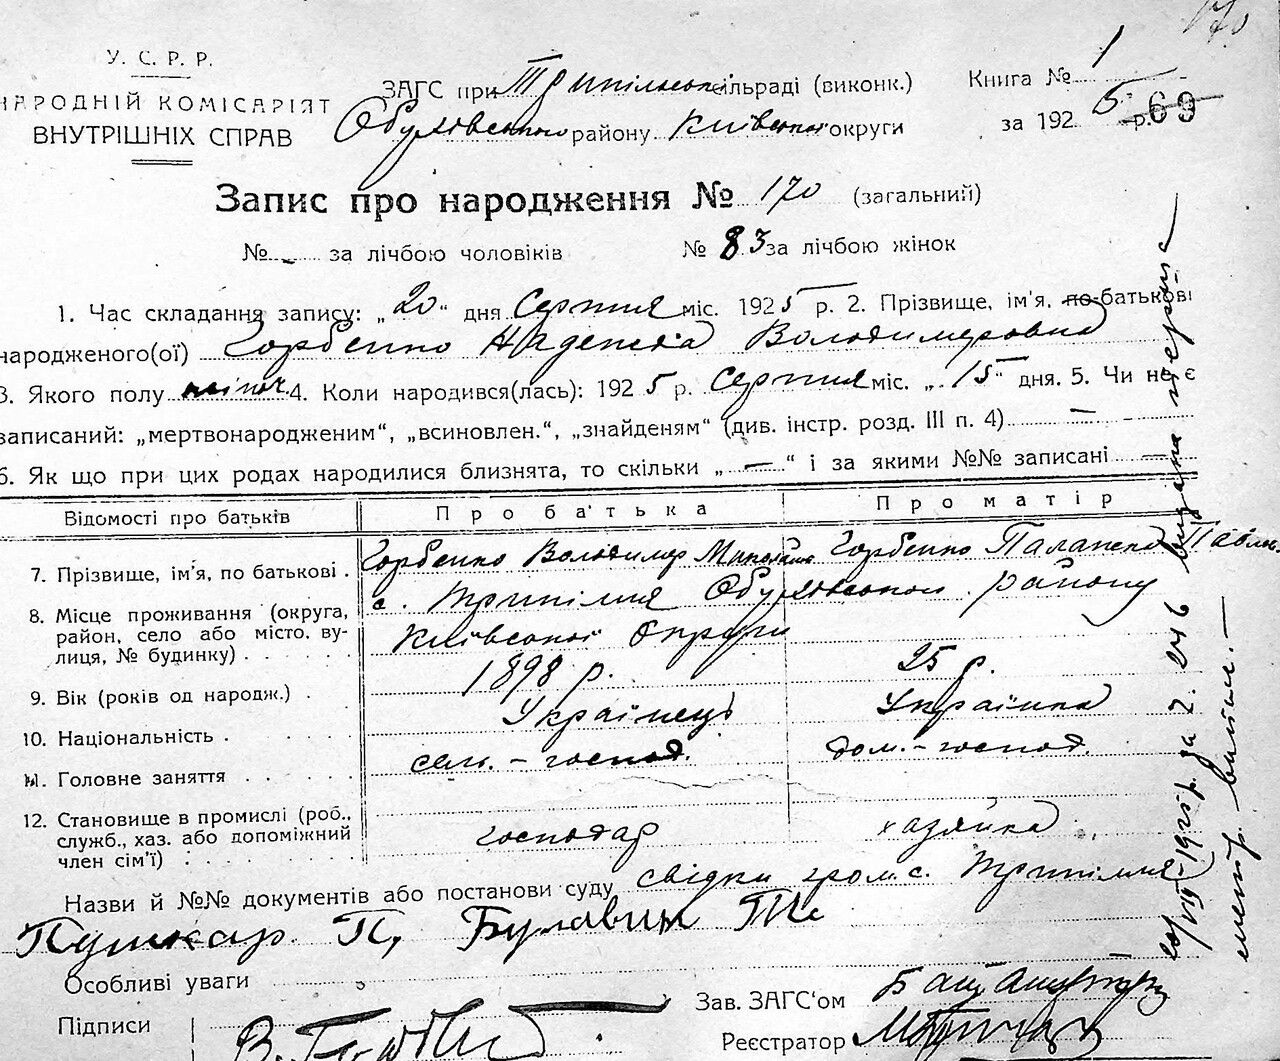 170
У. С. Р. Р.
НАРОДНІЙ КОМІСАРІЯТ
ВНУТРІШНІХ СПРАВ
ЗАГС при Трипільській сільраді (виконк.)
Обухівського району Київської округи
Книга № 1
за 1925 р. 69
Запис про народження № 170 (загальний)
№ - за лічбою чоловіків № 83 за лічбою жінок
1. Час складання запису: „20“ дня Серпня міс. 1925 р. 2. Прізвище, ім'я, по-батькові
народженого(ої) Горбенко Надежда Володимеровна
3. Якого полу жіноч. 4. Коли народився(лась): 1925 р. Серпня міс. „15“ дня. 5. Чи не є
записаний: „мертвонародженим“, „всиновлен.“, „знайденям“ (див. інстр. розд. III п. 4) —
6. Як що при цих родах народилися близнята, то скільки „ — “ і за якими №№ записані —
Відомості про батьків Про батька Про матір
7. Прізвище, ім'я, по батькові . Горбенко Володимер Горбенко Палажка Павлов.
8. Місце проживання (округа, район, село або місто, вулиця, № будинку) с. Трипілля Обухівського району
Київської округи
9. Вік (років од народж.) . 1898 р. 25 р.
10. Національність . Українець Українка
11. Головне заняття сель. - господ. дом. - господ.
12. Становище в промислі (роб., служб., хаз. або допоміжний член сім'ї) господар хазяйка
Назви й №№ документів або постанови суду свідки гром. с. Трипілля
Пушкар П, Булавин
Особливі уваги
Підписи
Зав. ЗАГС'ом
Реєстратор
видана